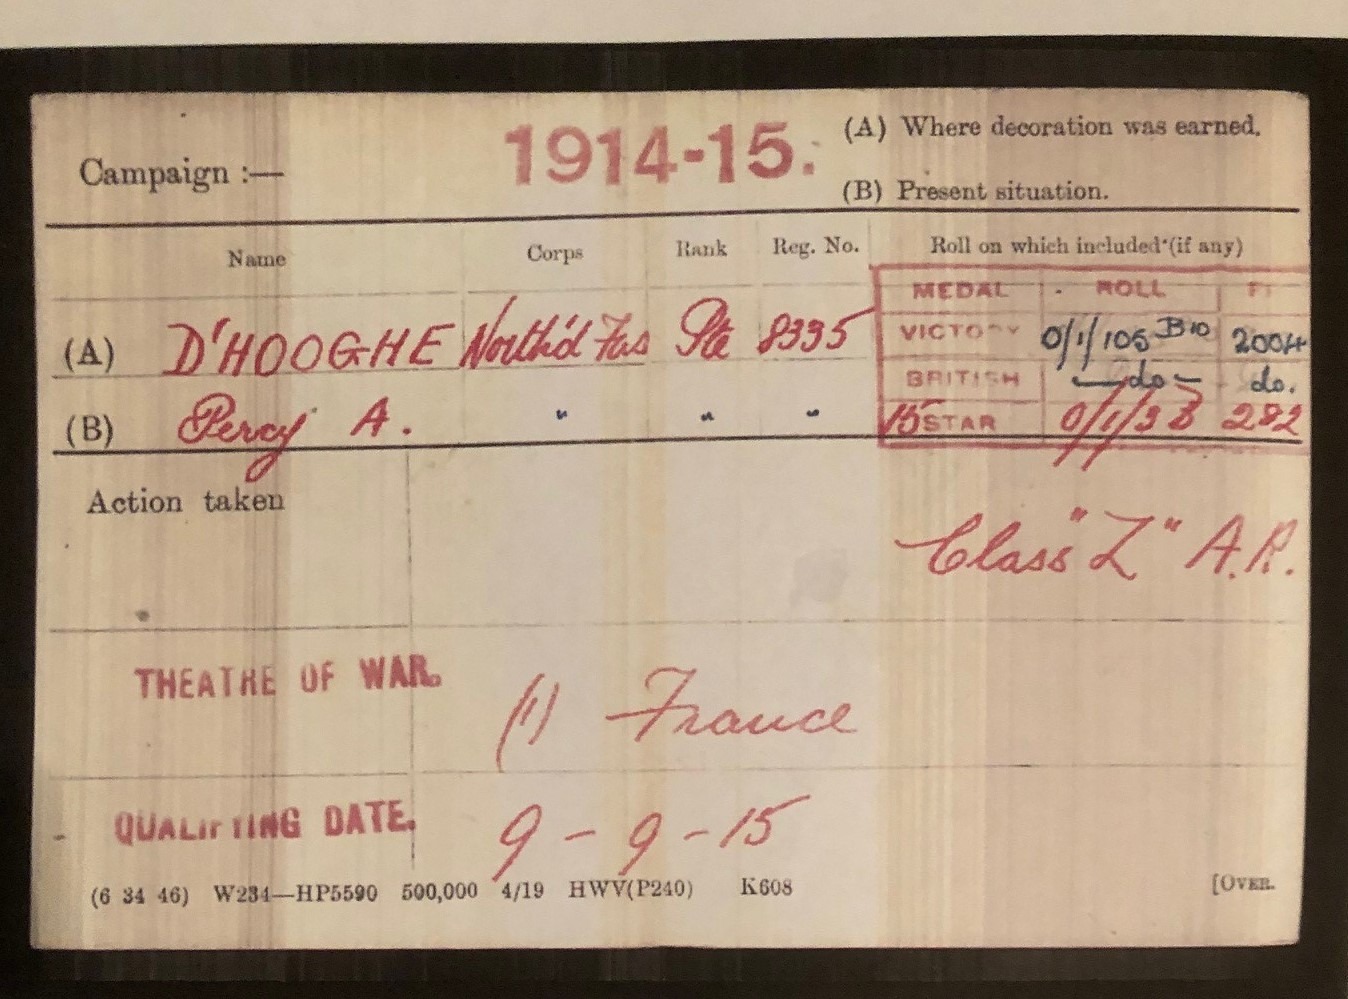 Campaign :— 1914-15. (A) Where decoration was earned.
(B) Present situation.
Name Corps Rank Reg. No. Roll on which included (if any)
MEDAL ROLL
(A) D'HOOGHE North'd Fus Pte 8335 VICTORY 0/1/105 B10 2004
BRITISH —do— do.
(B) Percy A. " " " 15 STAR 0/1/3 B 282
Action taken
Class "Z" A.R.
THEATRE OF WAR. (1) France
QUALIFYING DATE. 9-9-15
(6 34 46) W234—HP5590 500,000 4/19 HWV(P240) K608 [OVER.